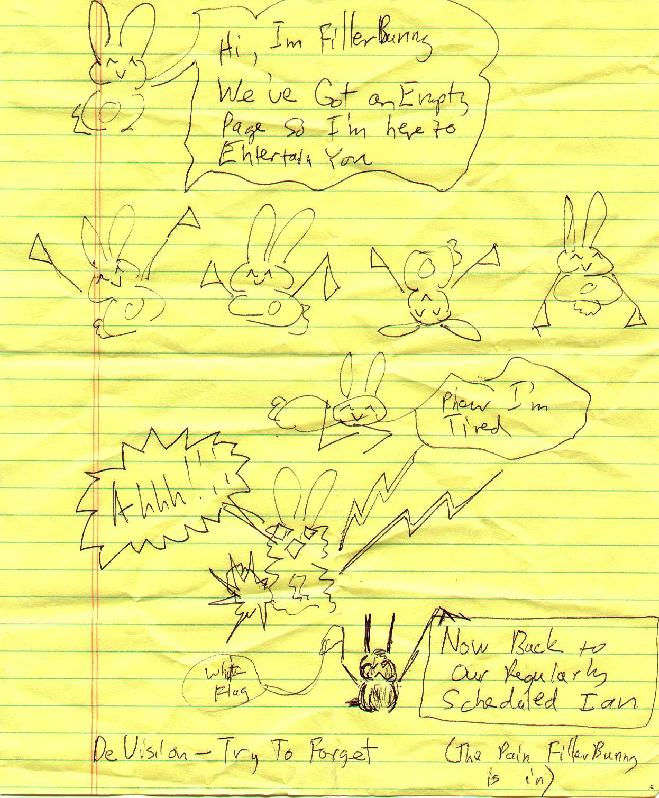 Hi, Im FillerBunny
We've Got an Empty
Page So I'm here to
Entertain You
Phew I'm
Tired
Ahhh!!!
White
Flag
Now Back to
Our Regularly
Scheduled Ian
De Vision - Try To Forget
(The Pain FillerBunny
is in)